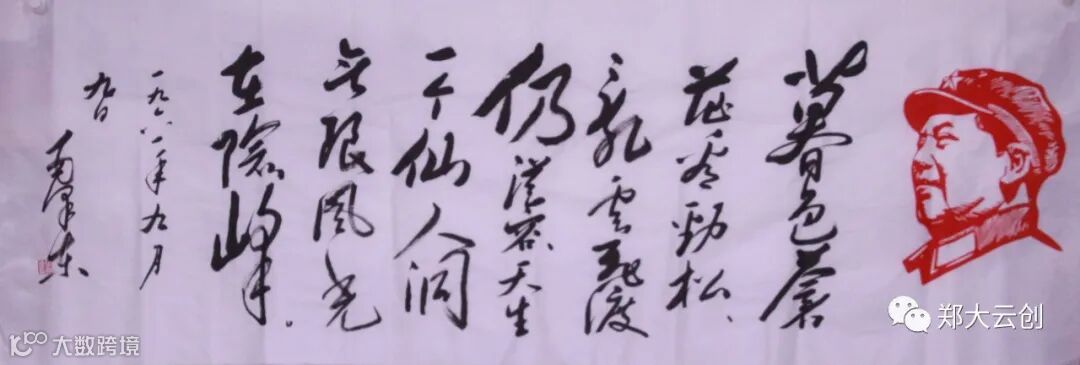 暮色苍
茫看劲松、
乱云飞渡
仍从容天生
一个仙人洞
无限风光
在險峰。
一九六一年九月
九日
毛泽东
郑大云创
大数跨境